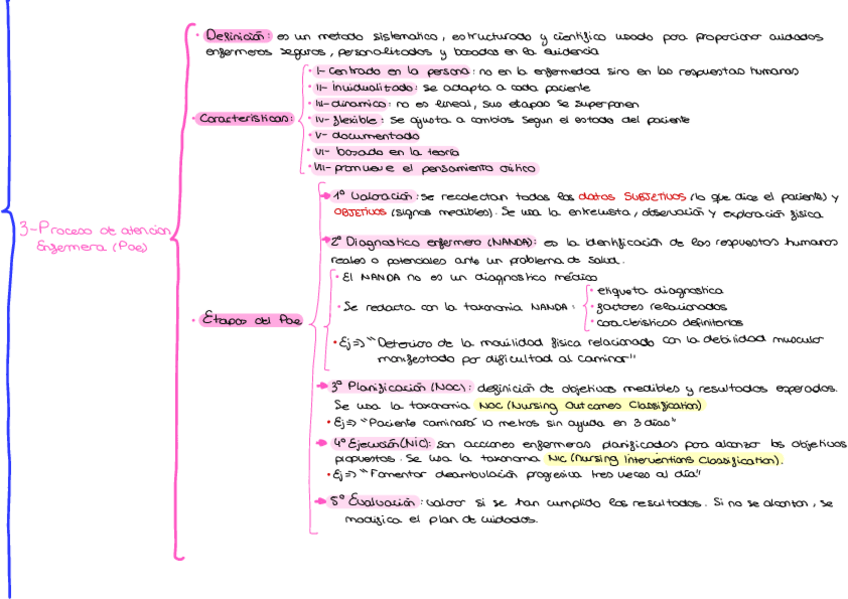 · Definición: es un metodo sistematico, estructurado y cientifico usado para proporcionar cuidados
enfermeros seguros, personalitzados y basados en la evidencia
· Caracteristicas:
· I- Centrado en la persona: no en la enfermedad sino en las respuestas humanas
· II- inuidualitzado: se adapta a cada paciente
· III- dinamico: no es lineal, sus etapas se superponen
· IV- flexible: se ajusta a cambios segun el estado del paciente
· V- documentado
· VI- basado en la teoría
· VII- promueve el pensamiento critico
3-Proceso de atencion
Enfermera (Pae)
· Etapas del Pae
1º Valoración: se recolectan todos los datos SUBJETIVOS (lo que dice el paciente) y
OBJETIVOS (signos medibles). Se usa la entrevista, observación y exploración física
2º Diagnostico enfermero (NANDA): es la identificación de las respuestas humanas
reales o potenciales ante un problema de salud.
· El NANDA no es un diagnostico médico
· Se redacta con la taxonomia NANDA:
· etiqueta diagnostica
· factores relacionados
· características definitorias
· Ej=> "Deterioro de la movilidad física relacionado con la debilidad muscular
manifestado por dificultad al caminar"
3º Planificación (NOC): definición de objetivos medibles y resultados esperados.
Se usa la taxonomia NOC (Nursing Outcomes Classification)
· Ej=> "Paciente caminará 10 metros sin ayuda en 3 días"
4º Ejecución (NIC): son acciones enfermeras planificadas para alcanzar los objetivos
propuestos. Se usa la taxonoma NIC (Nursing Interventions Classification).
· Ej=> "Fomentar deambulación progresiva tres veces al día"
5º Evaluación: valorar si se han cumplido los resultados. Si no se alcanzan, se
modifica el plan de cuidados.